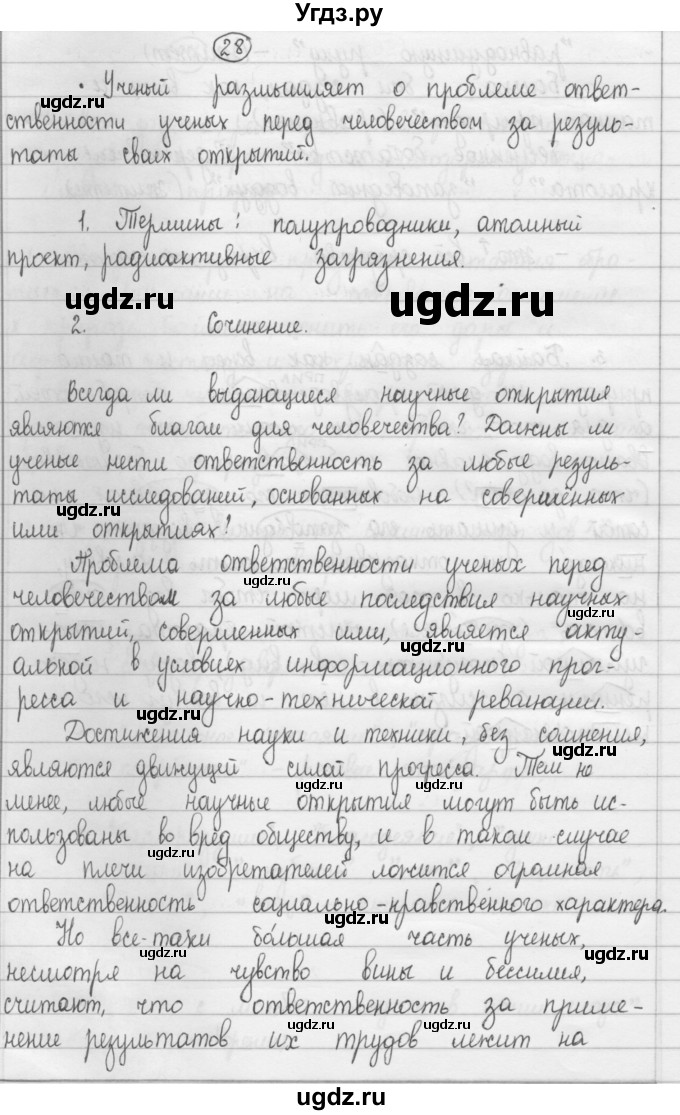 Угдз.ру
28
Ученый размышляет о проблеме ответ-
ственности ученых перед человечеством за резуль-
таты своих открытий.
1. Термины: полупроводники, атомный
проект, радиоактивные загрязнения.
2. Сочинение.
Всегда ли выдающиеся научные открытия
являются благом для человечества? Должны ли
ученые нести ответственность за любые резуль-
таты исследований, основанных на совершённых
ими открытиях?
Проблема ответственности ученых перед
человечеством за любые последствия научных
открытий, совершенных ими, является акту-
альной в условиях информационного прог-
ресса и научно-технической революции.
Достижения науки и техники, без сомнения,
являются движущей силой прогресса. Тем не
менее, любые научные открытия могут быть ис-
пользованы во вред обществу, и в таком случае
на плечи изобретателей ложится огромная
ответственность социально-нравственного характера.
Но все-таки бо́льшая часть ученых,
несмотря на чувство вины и бессилия,
считают, что ответственность за приме-
нение результатов их трудов лежит на
ugdz.ru